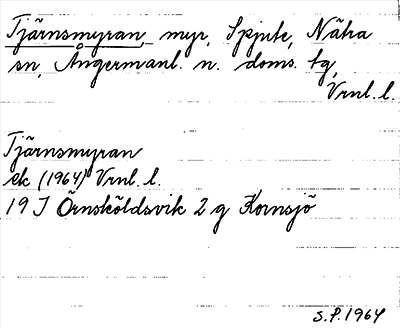 Tjärnsmyran, myr, Spjute, Nätra
sn, Ångermanl. n. doms. tg,
Vrnl. l.
Tjärnsmyran
ek (1964) Vrnl. l.
19 J Örnsköldsvik 2 g Kornsjö
S.P. 1964